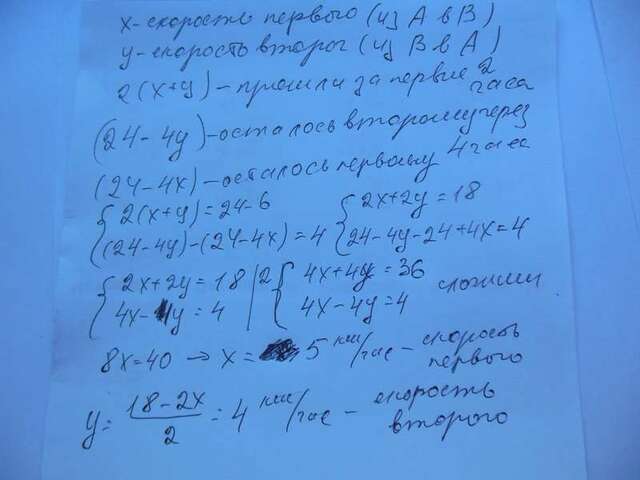 x - скорость первого (из А в В)
у - скорость второг (из В в А)
2(x+y) - прошли за первые 2 часа
(24-4y) - осталось второму через
(24-4x) - осталось первому 4 часа
{ 2(x+y)=24-6 { 2x+2y=18
(24-4y)-(24-4x)=4 24-4y-24+4x=4
{ 2x+2y=18 |2 { 4x+4y=36
4x-4y=4 4x-4y=4 сложим
8x=40 → x= 5 км/час - скорость первого
y= 18-2x/2 = 4 км/час - скорость второго